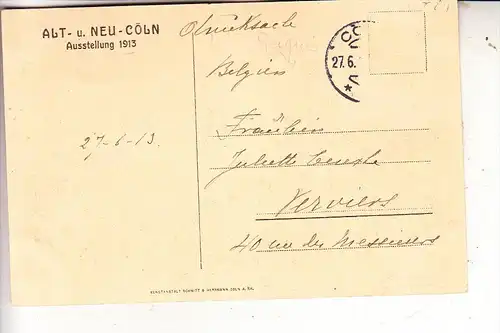 ALT- u. NEU-CÖLN
Ausstellung 1913
Drucksache
Belgien
27.6.
27-6-13.
Fräulein
Juliette
Verviers
40 rue des Messieurs
KUNSTANSTALT SCHMITT & HERRMANN CÖLN A. RH.